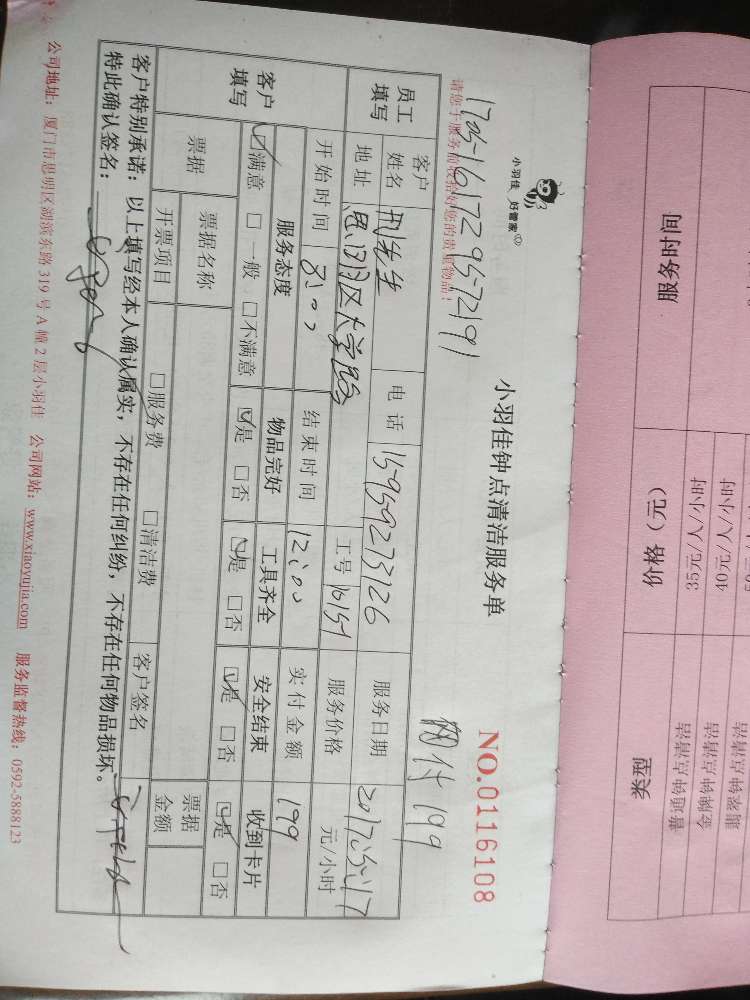 小羽佳 好管家
小羽佳钟点清洁服务单
NO.0116108
1705-161729572191
网付 199
请您于服务前收拾好您的贵重物品!
员工填写 客户姓名 电话 15959273126 服务日期 2017.5.17
地址 思明区大学路 工号 10151 服务价格 元/小时
开始时间 8:00 结束时间 12:00 实付金额 199
客户填写 服务态度 物品完好 工具齐全 安全结束 收到卡片
☑满意 □一般 □不满意 ☑是 □否 ☑是 □否 ☑是 □否 ☑是 □否
票据 票据名称 票据金额
开票项目 □服务费 □清洁费 客户签名
客户特别承诺：以上填写经本人确认属实，不存在任何纠纷，不存在任何物品损坏。
特此确认签名：
公司地址：厦门市思明区湖滨东路 319 号 A 幢 2 层小羽佳 公司网站：www.xiaoyujia.com 服务监督热线：0592-5888123
类型 价格（元） 服务时间
普通钟点清洁 35元/人/小时
金牌钟点清洁 40元/人/小时